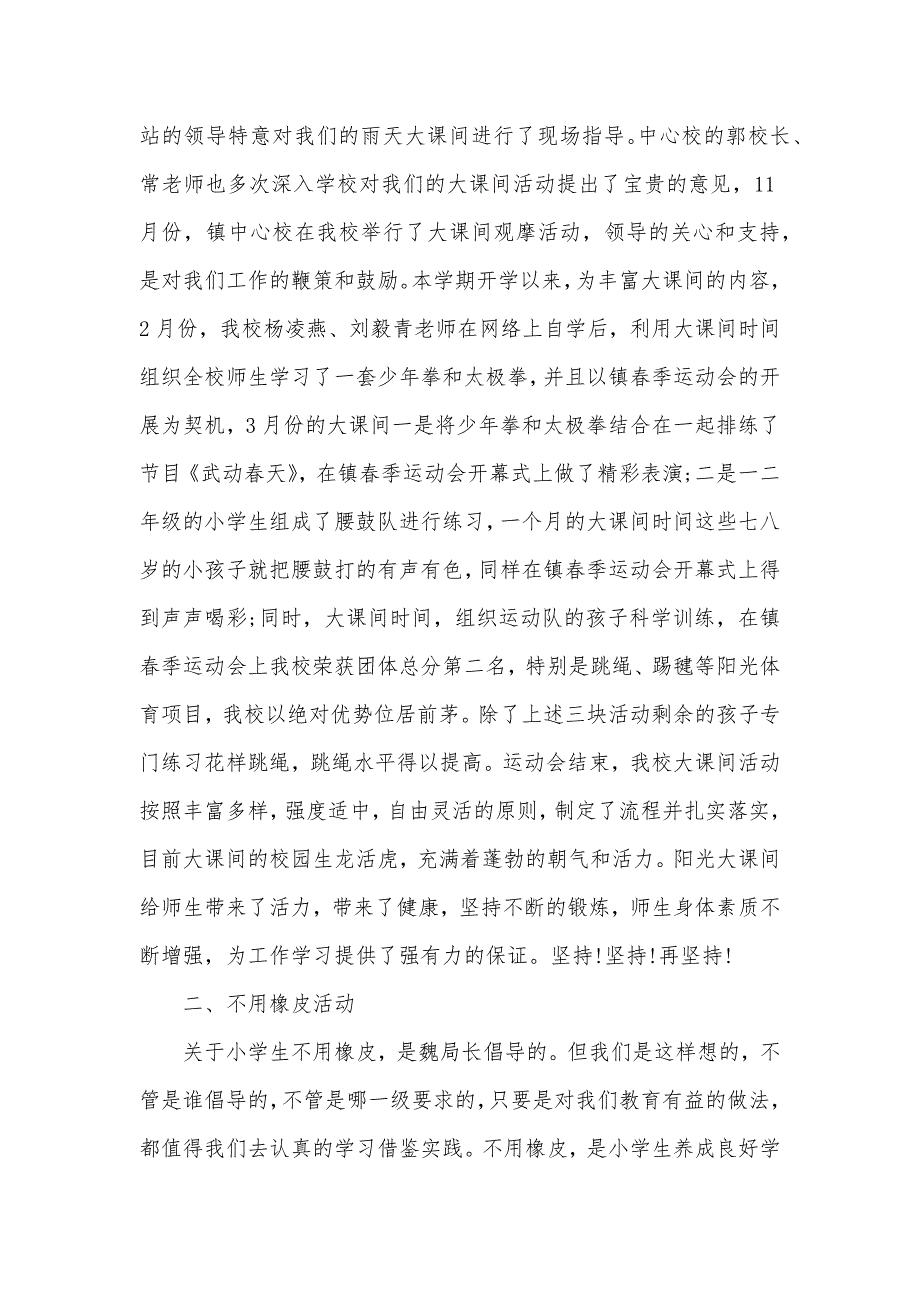 站的领导特意对我们的雨天大课间进行了现场指导。中心校的郭校长、
常老师也多次深入学校对我们的大课间活动提出了宝贵的意见，11
月份，镇中心校在我校举行了大课间观摩活动，领导的关心和支持，
是对我们工作的鞭策和鼓励。本学期开学以来，为丰富大课间的内容，
2 月份，我校杨凌燕、刘毅青老师在网络上自学后，利用大课间时间
组织全校师生学习了一套少年拳和太极拳，并且以镇春季运动会的开
展为契机，3 月份的大课间一是将少年拳和太极拳结合在一起排练了
节目《武动春天》，在镇春季运动会开幕式上做了精彩表演;二是一二
年级的小学生组成了腰鼓队进行练习，一个月的大课间时间这些七八
岁的小孩子就把腰鼓打的有声有色，同样在镇春季运动会开幕式上得
到声声喝彩;同时，大课间时间，组织运动队的孩子科学训练，在镇
春季运动会上我校荣获团体总分第二名，特别是跳绳、踢毽等阳光体
育项目，我校以绝对优势位居前茅。除了上述三块活动剩余的孩子专
门练习花样跳绳，跳绳水平得以提高。运动会结束，我校大课间活动
按照丰富多样，强度适中，自由灵活的原则，制定了流程并扎实落实，
目前大课间的校园生龙活虎，充满着蓬勃的朝气和活力。阳光大课间
给师生带来了活力，带来了健康，坚持不断的锻炼，师生身体素质不
断增强，为工作学习提供了强有力的保证。坚持!坚持!再坚持!
二、不用橡皮活动
关于小学生不用橡皮，是魏局长倡导的。但我们是这样想的，不
管是谁倡导的，不管是哪一级要求的，只要是对我们教育有益的做法，
都值得我们去认真的学习借鉴实践。不用橡皮，是小学生养成良好学